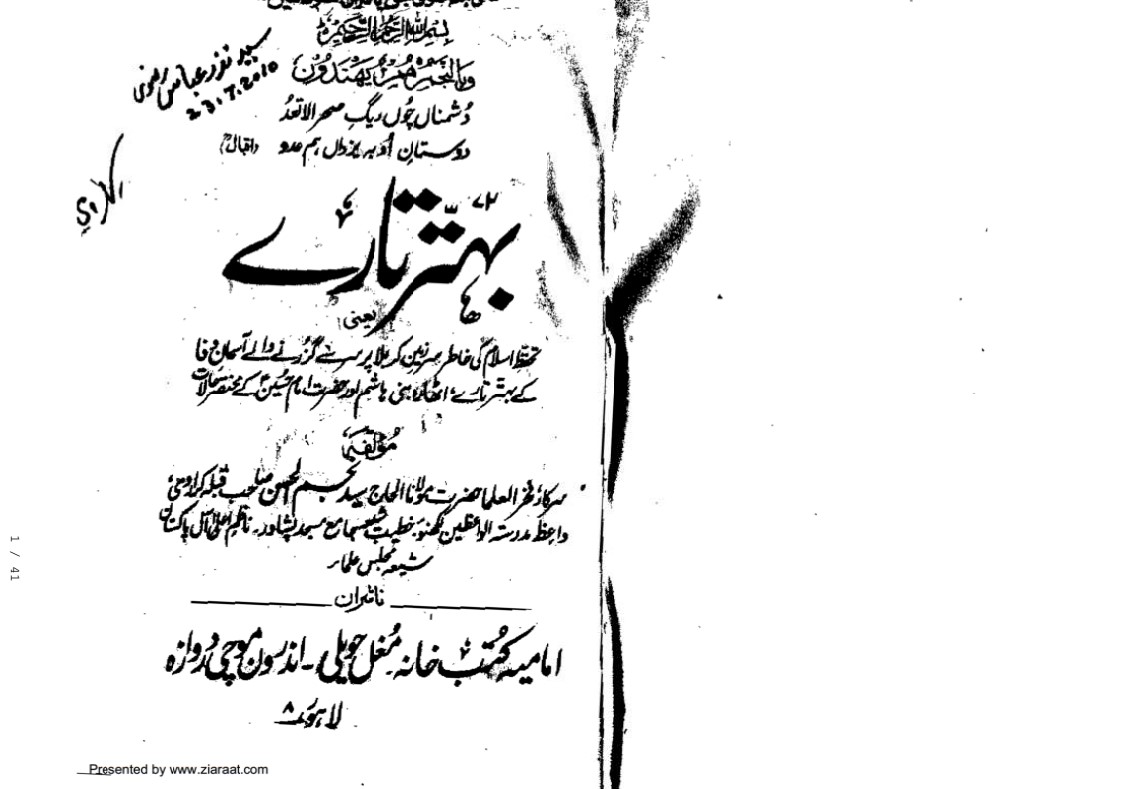 بِسْمِ اللّٰهِ الرَّحْمٰنِ الرَّحِيْمِ
وَبِالنَّجْمِ هُمْ يَهْتَدُوْنَ
سید نذر عباس رضوی
23.7.2010
دُشمناں چُوں ریگِ صحرا لاتعدُ
دوستانِ اُو بہ یزداں ہم عدد (اقبالؒ)
۷۲
بہتّر تارے
یعنی
تحفظِ اسلام کی خاطر سرزمینِ کربلا پر سر سے گزرنے والے آسمانِ وفا
کے بہتّر تارے، اٹھارہ بنی ہاشم اور حضرت امام حُسینؑ کے مختصر حالات
مؤلفہ
سرکار فخر العلما حضرت مولانا الحاج سید نجم الحسن صاحب قبلہ کراروی
واعظ مدرستہ الواعظین لکھنؤ۔ خطیب شیعہ جامع مسجد پشاور۔ ناظم اعلیٰ آل پاکستان
شیعہ مجلس علماء
ناشران
امامیہ کُتب خانہ مُغل حویلی۔ اندرون موچی دروازہ
لاہور ۸
Presented by www.ziaraat.com
1 / 41